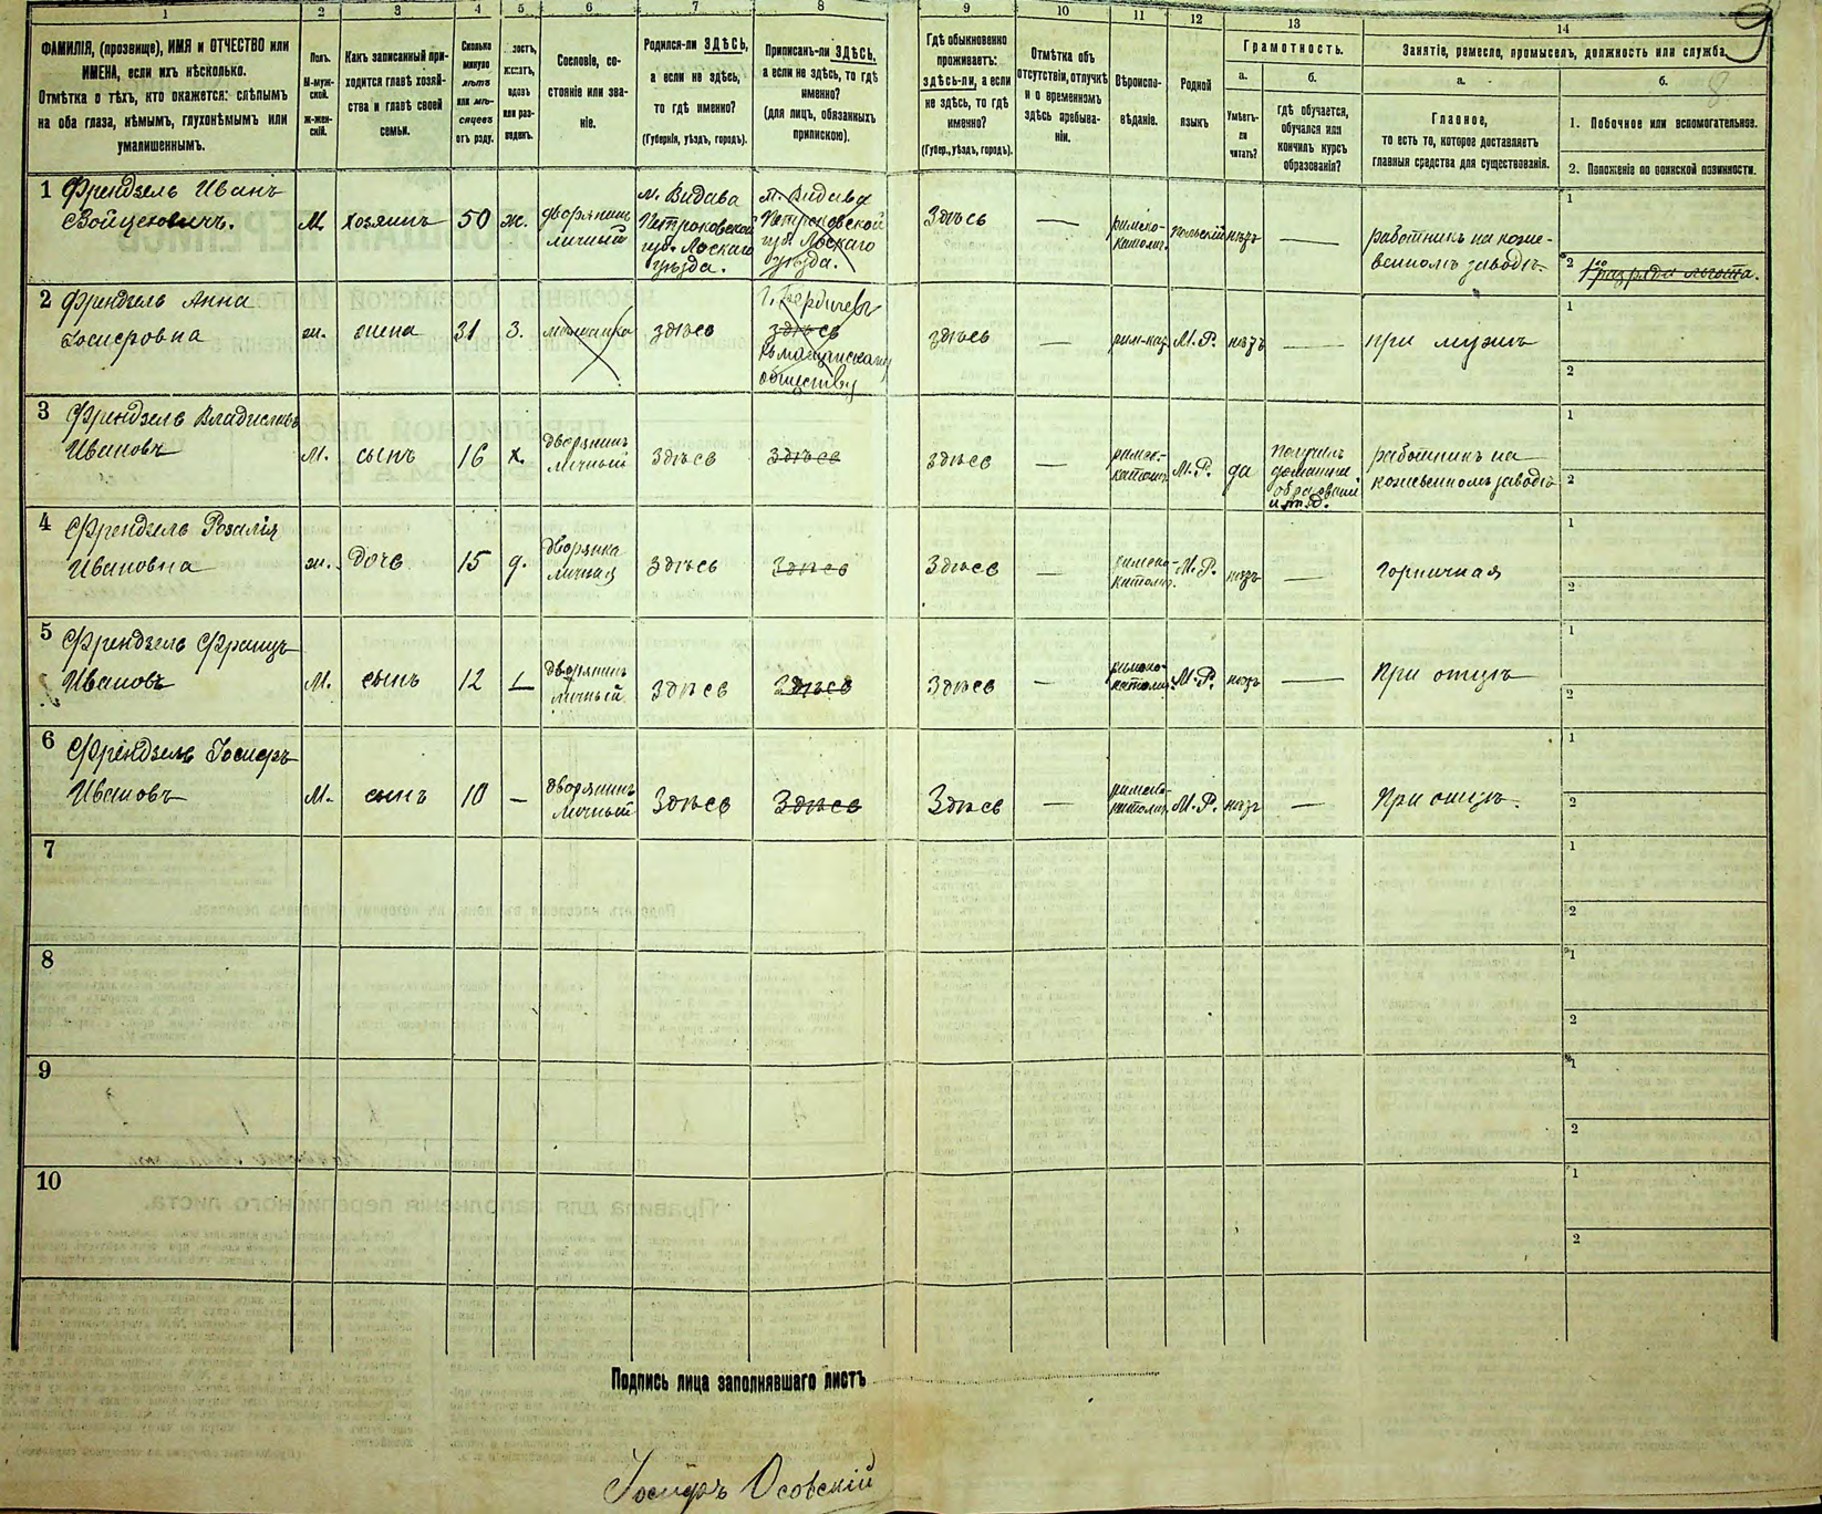 1 2 3 4 5 6 7 8 9 10 11 12 13 14
9
8
ФАМИЛІЯ, (прозвище), ИМЯ и ОТЧЕСТВО или
ИМЕНА, если ихъ нѣсколько.
Отмѣтка о тѣхъ, кто окажется: слѣпымъ
на оба глаза, нѣмымъ, глухонѣмымъ или
умалишеннымъ.
Полъ.
М-муж-
ской.
Ж-жен-
скій.
Какъ записанный при-
ходится главѣ хозяй-
ства и главѣ своей
семьи.
Сколько
минуло
лѣтъ
или мѣ-
сяцевъ
отъ роду.
вдовъ
или раз-
веденъ.
Сословіе, со-
стояніе или зва-
ніе.
Родился-ли ЗДѢСЬ,
а если не здѣсь,
то гдѣ именно?
(Губернія, уѣздъ, городъ).
Приписанъ-ли ЗДѢСЬ,
а если не здѣсь, то гдѣ
именно?
(для лицъ, обязанныхъ
припискою).
Гдѣ обыкновенно
проживаетъ:
здѣсь-ли, а если
не здѣсь, то гдѣ
именно?
(Губер., уѣздъ, городъ).
Отмѣтка объ
отсутствіи, отлучкѣ
и о временномъ
здѣсь пребыва-
ніи.
Вѣроиспо-
вѣданіе.
Родной
языкъ
Грамотность.
а.
Умѣетъ-
ли
читать?
б.
Гдѣ обучается,
обучался или
кончилъ курсъ
образованія?
Занятіе, ремесло, промыселъ, должность или служба.
а.
Главное,
то есть то, которое доставляетъ
главныя средства для существованія.
б.
1. Побочное или вспомогательное.
2. Положеніе по воинской повинности.
1 Френдзель Иванъ
Войцеховичъ.
М.
хозяинъ
50
ж.
дворянинъ
личный
м. Видава
Петроковской
губ. Лоскаго
уѣзда.
м. Видава
Петроковской
губ. Лоскаго
уѣзда.
Здѣсь
—
римско-
католич.
польскій
нѣтъ
—
работникъ на коже-
венномъ заводѣ
1
2
2 Френдзель Анна
Іосифовна
ж.
жена
31
з.
мѣщанка
здѣсь
г. Бердичевъ
здѣсь
къ мѣщанскому
обществу
здѣсь
—
рим-кат.
М.Р.
нѣтъ
—
при мужѣ
1
2
3 Френдзель Владиславъ
Ивановъ
М.
сынъ
16
х.
дворянинъ
личный
здѣсь
здѣсь
здѣсь
—
римск.-
католич
М.Р.
да
домашнее
работникъ на
кожевенномъ заводѣ
1
2
4 Френдзель Розалія
Ивановна
ж.
дочь
15
д.
дворянка
личная
здѣсь
здѣсь
Здѣсь
—
римско-
католич.
М.Р.
нѣтъ
—
горничная
1
2
5 Френдзель Францъ
Ивановъ
М.
сынъ
12
—
дворянинъ
личный
здѣсь
здѣсь
здѣсь
—
римско-
католич.
М.Р.
нѣтъ
—
При отцѣ
1
2
6 Френдзель Іосифъ
Ивановъ
М.
сынъ
10
—
дворянинъ
личный
Здѣсь
Здѣсь
Здѣсь
—
римско-
католич
М.Р.
нѣтъ
—
При отцѣ.
1
2
7
1
2
8
1
2
9
1
2
10
1
2
Подпись лица заполнявшаго листъ
Іосифъ Осовскій